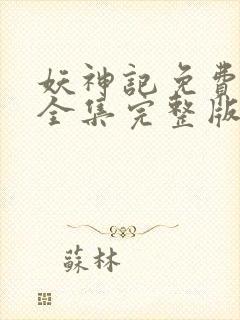 妖神記免費
全集完整版
蘇林